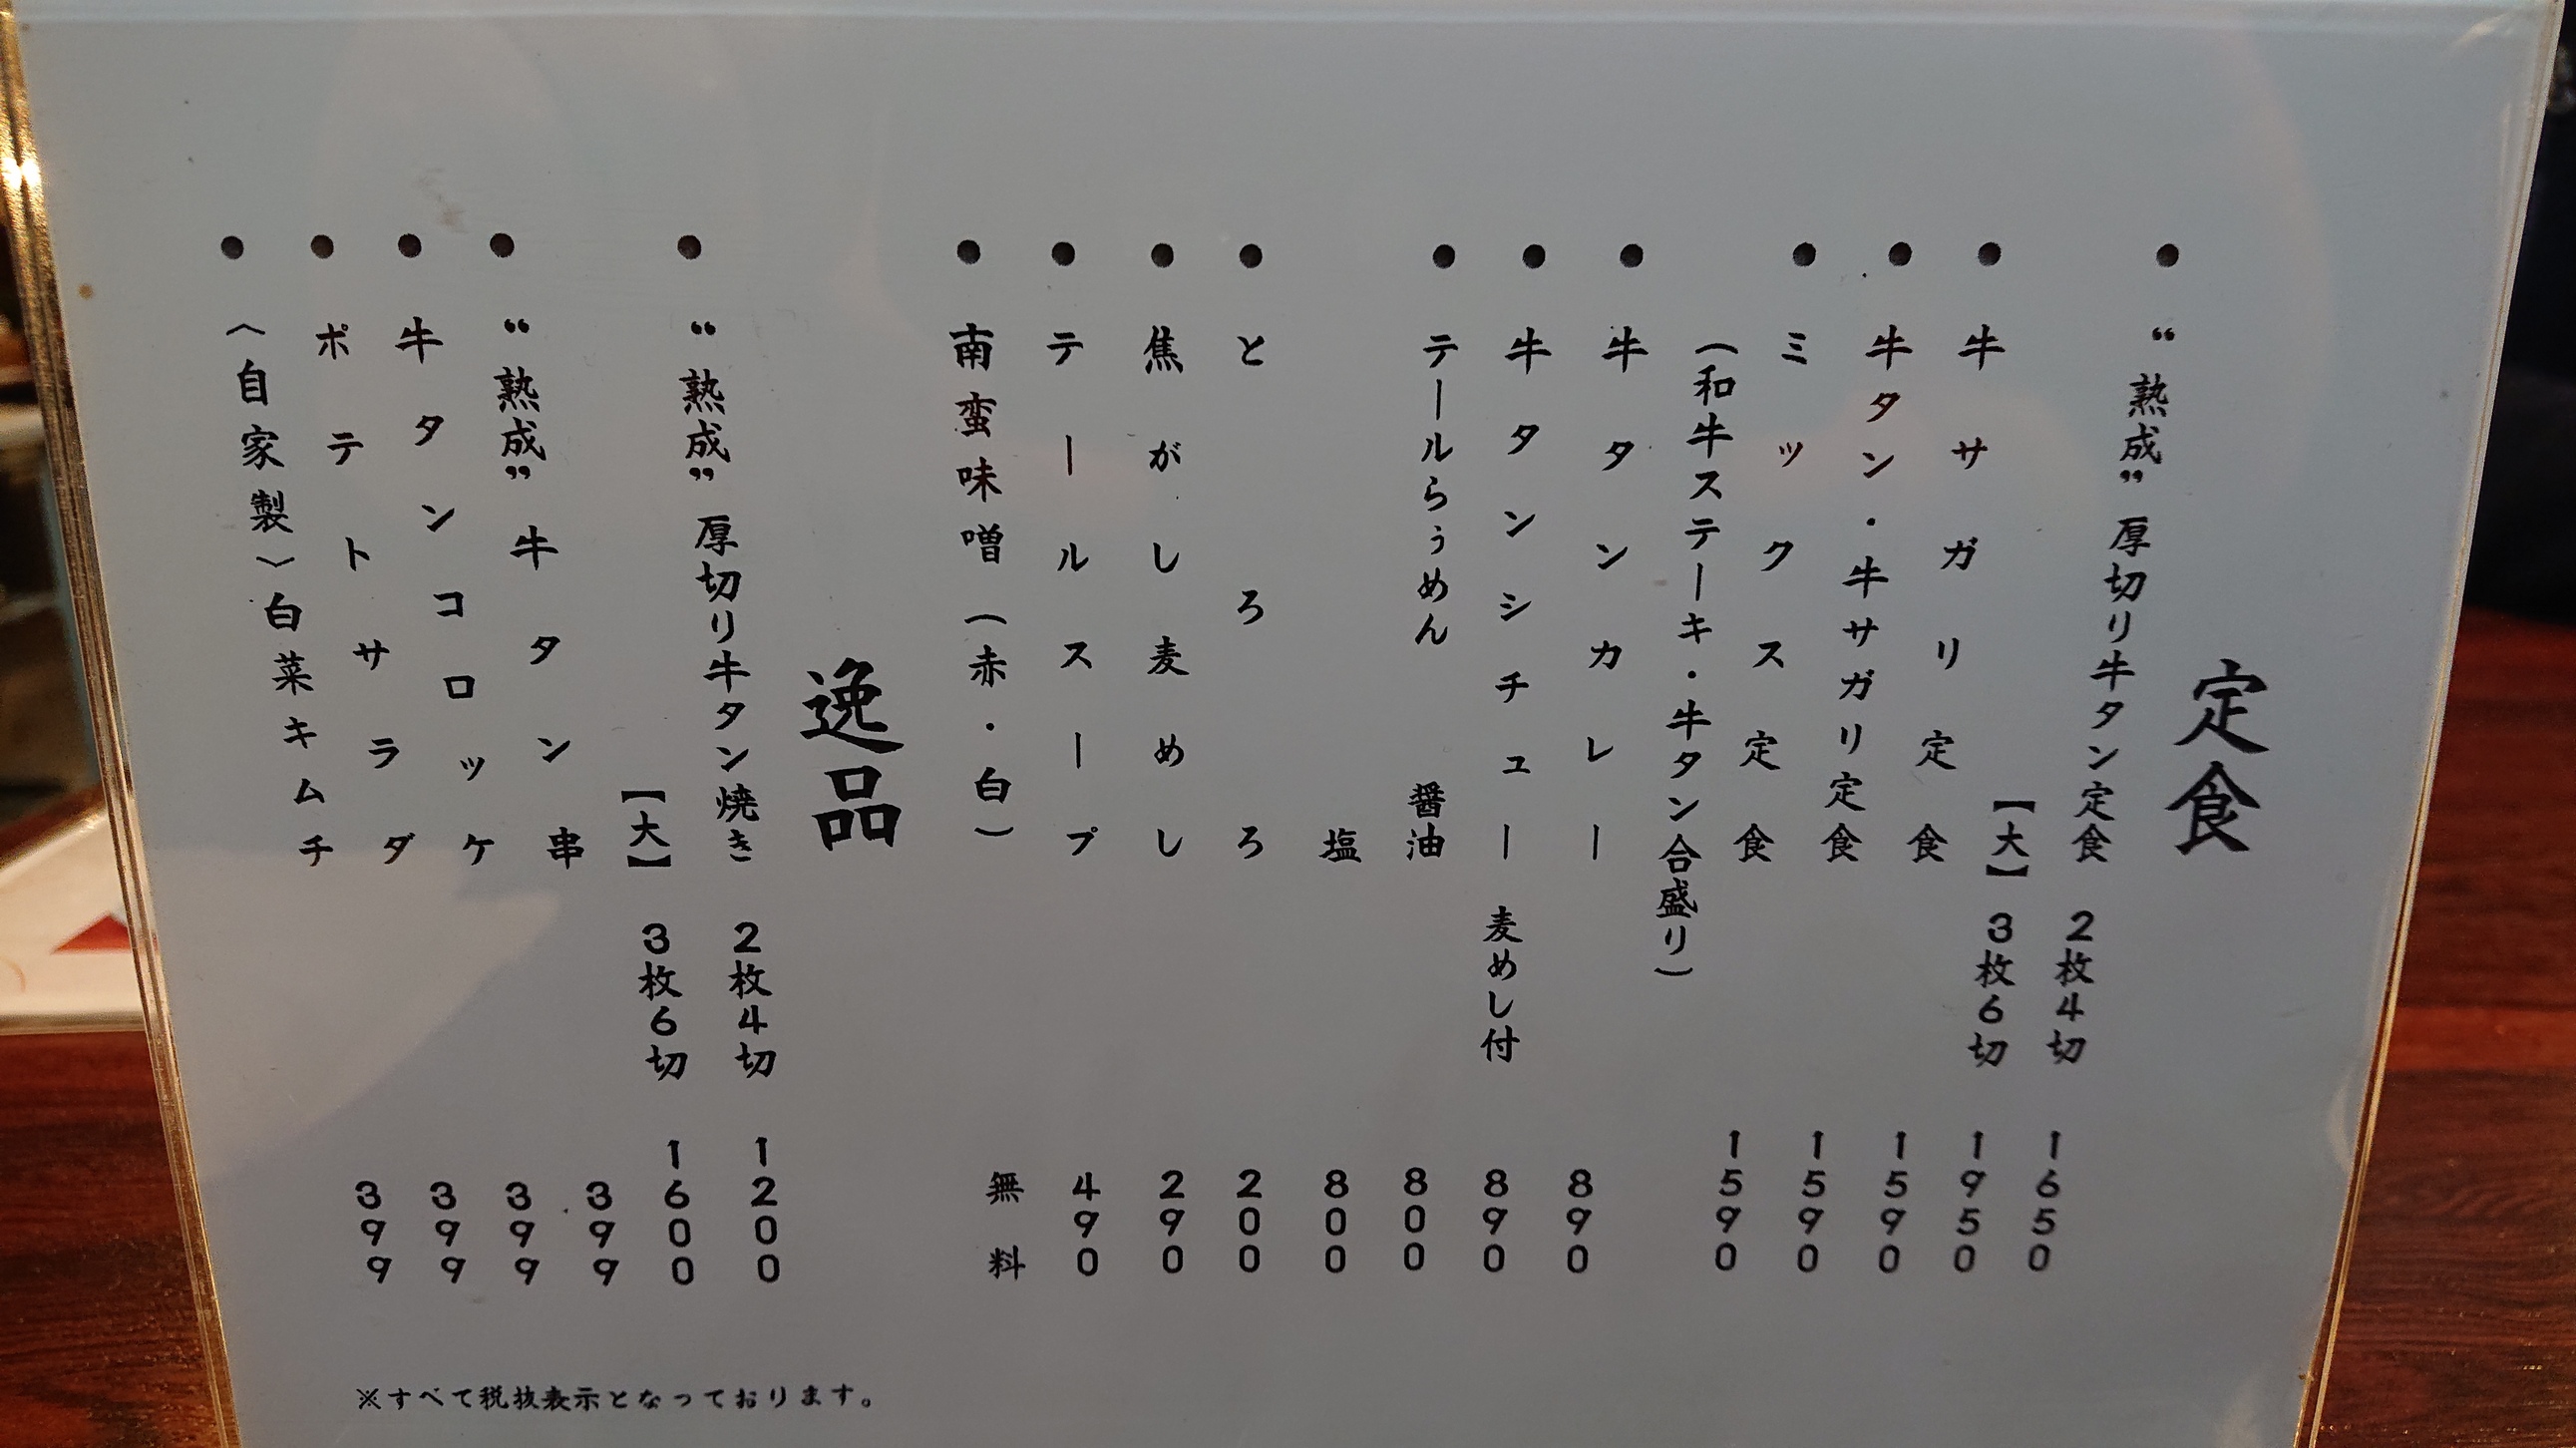 定食
● “熟成”厚切り牛タン定食 2枚4切 1650
【大】 3枚6切 1950
● 牛サガリ定食 1590
● 牛タン・牛サガリ定食 1590
● ミックス定食 1590
(和牛ステーキ・牛タン合盛り)
● 牛タンカレー 890
● 牛タンシチュー 麦めし付 890
● テールらぅめん 醤油 800
塩 800
● とろろ 200
● 焦がし麦めし 290
● テールスープ 490
● 南蛮味噌(赤・白) 無料
逸品
● “熟成”厚切り牛タン焼き 2枚4切 1200
【大】 3枚6切 1600
● “熟成”牛タン串 399
● 牛タンコロッケ 399
● ポテトサラダ 399
● 〈自家製〉白菜キムチ 399
※すべて税抜表示となっております。